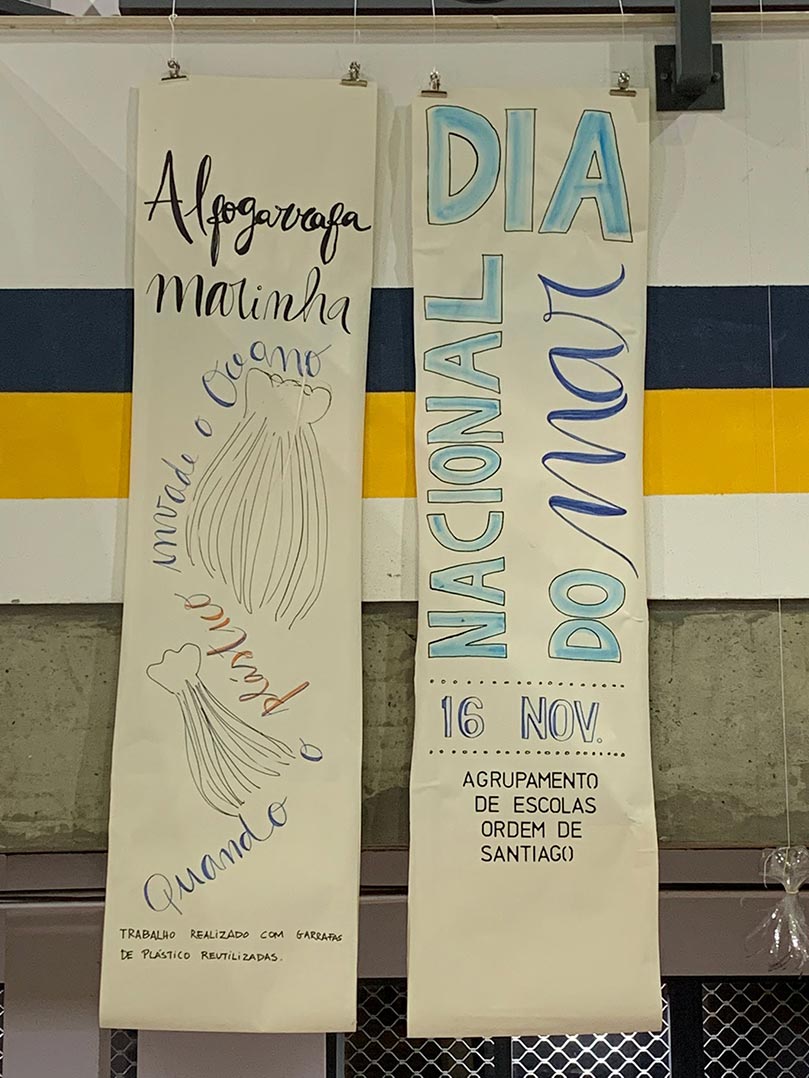 Alfogarrafa
marinha
Quando o plástico invade o Oceano
TRABALHO REALIZADO COM GARRAFAS
DE PLÁSTICO REUTILIZADAS.
DIA
NACIONAL
DO mar
16 NOV.
AGRUPAMENTO
DE ESCOLAS
ORDEM DE
SANTIAGO